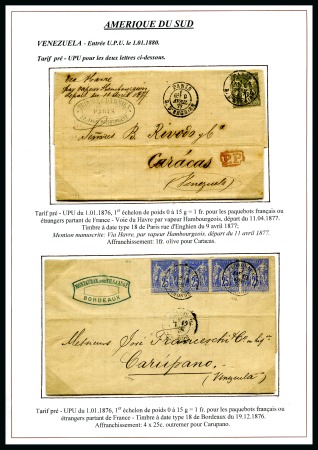 AMERIQUE DU SUD
VENEZUELA - Entrée U.P.U. le 1.01.1880.
Tarif pré - UPU pour les deux lettres ci-dessous.
Via Havre
par vapeur Hambourgeois
départ du 11 avril 1877
PARIS
PARIS
P.P.
Caracas
(Venezuela)
Tarif pré - UPU du 1.01.1876, 1er échelon de poids 0 à 15 g = 1 fr. pour les paquebots français ou
étrangers partant de France - Voie du Havre par vapeur Hambourgeois, départ du 11.04.1877.
Timbre à date type 18 de Paris rue d'Enghien du 9 avril 1877;
Mention manuscrite: Via Havre, par vapeur Hambourgeois, départ du 11 avril 1877.
Affranchissement: 1fr. olive pour Caracas.
BORDEAUX
25 25 25 25
Messieurs José Franceschi & Co
Carúpano.
(Venezuela)
Tarif pré - UPU du 1.01.1876, 1er échelon de poids 0 à 15 g = 1 fr. pour les paquebots français ou
étrangers partant de France - Timbre à date type 18 de Bordeaux du 19.12.1876.
Affranchissement: 4 x 25c. outremer pour Carupano.